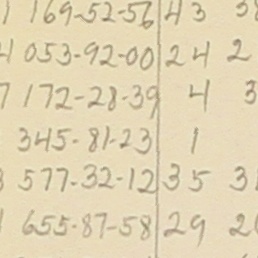 1 169-52-56 43 3
053-92-00 24 2
7 172-28-39 4 3
345-81-23 1
577-32-12 35 3
655-87-58 29 2